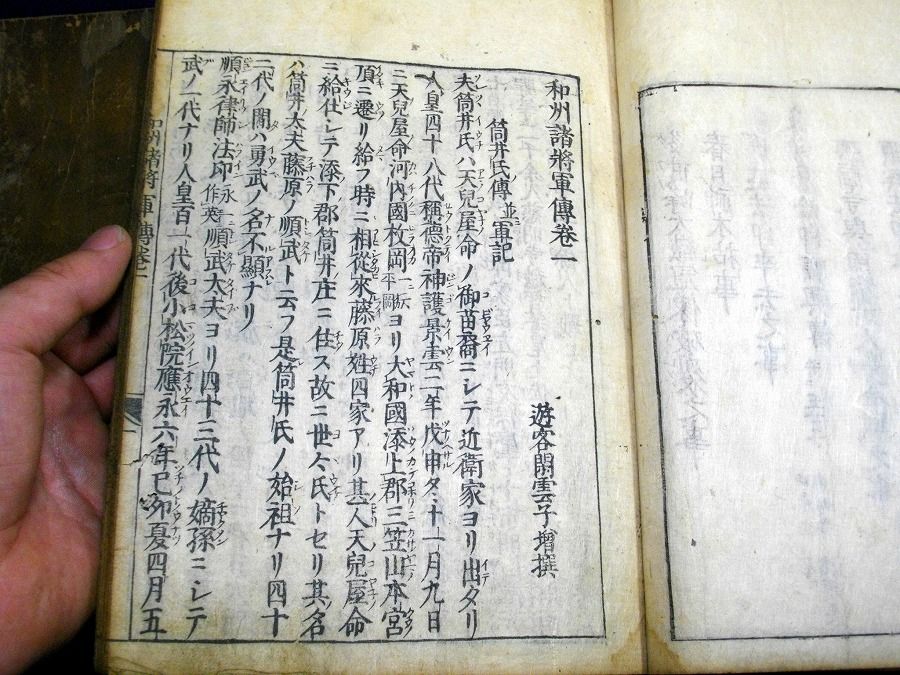 和州諸將軍傳卷一
遊客閑雲子增撰
筒井氏傳並軍記
夫筒井氏ハ天兒屋命ノ御苗裔ニシテ近衛家ヨリ出タリ
人皇四十八代稱德帝神護景雲二年戊申タ十一月九日
ニ天兒屋命河內國枚岡一ニ平岡ニ作ヨリ大和國添上郡三笠山本宮
頂ニ遷リ給フ時ニ相從來藤原姓四家アリ其人天兒屋命
ニ給仕シテ添下郡筒井庄ニ住ス故ニ世々氏トセリ其名
ハ筒井太夫藤原ノ順武ト云フ是筒井氏ノ始祖ナリ四十
二代ノ間ハ勇武ノ名不顯ナリ
順永律師法印順武太夫ヨリ四十三代ノ嫡孫ニシテ
武ノ一代ナリ人皇百一代後小松院應永六年己卯夏四月五
和州諸將軍傳卷一